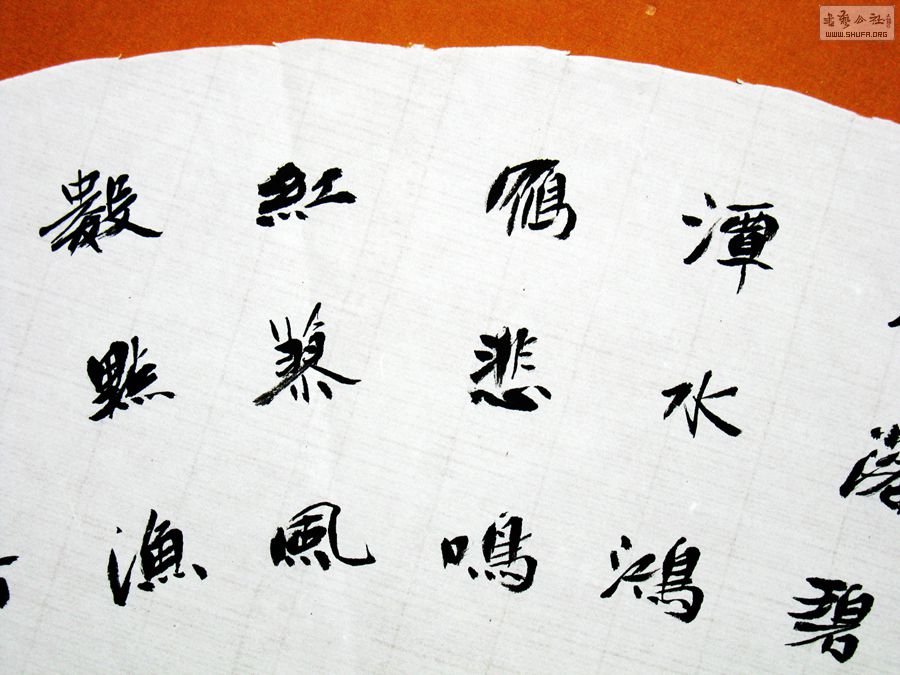 落碧
潭水鴻
雁悲鳴
紅蓼風
數點漁
書藝公社
WWW.SHUFA.ORG